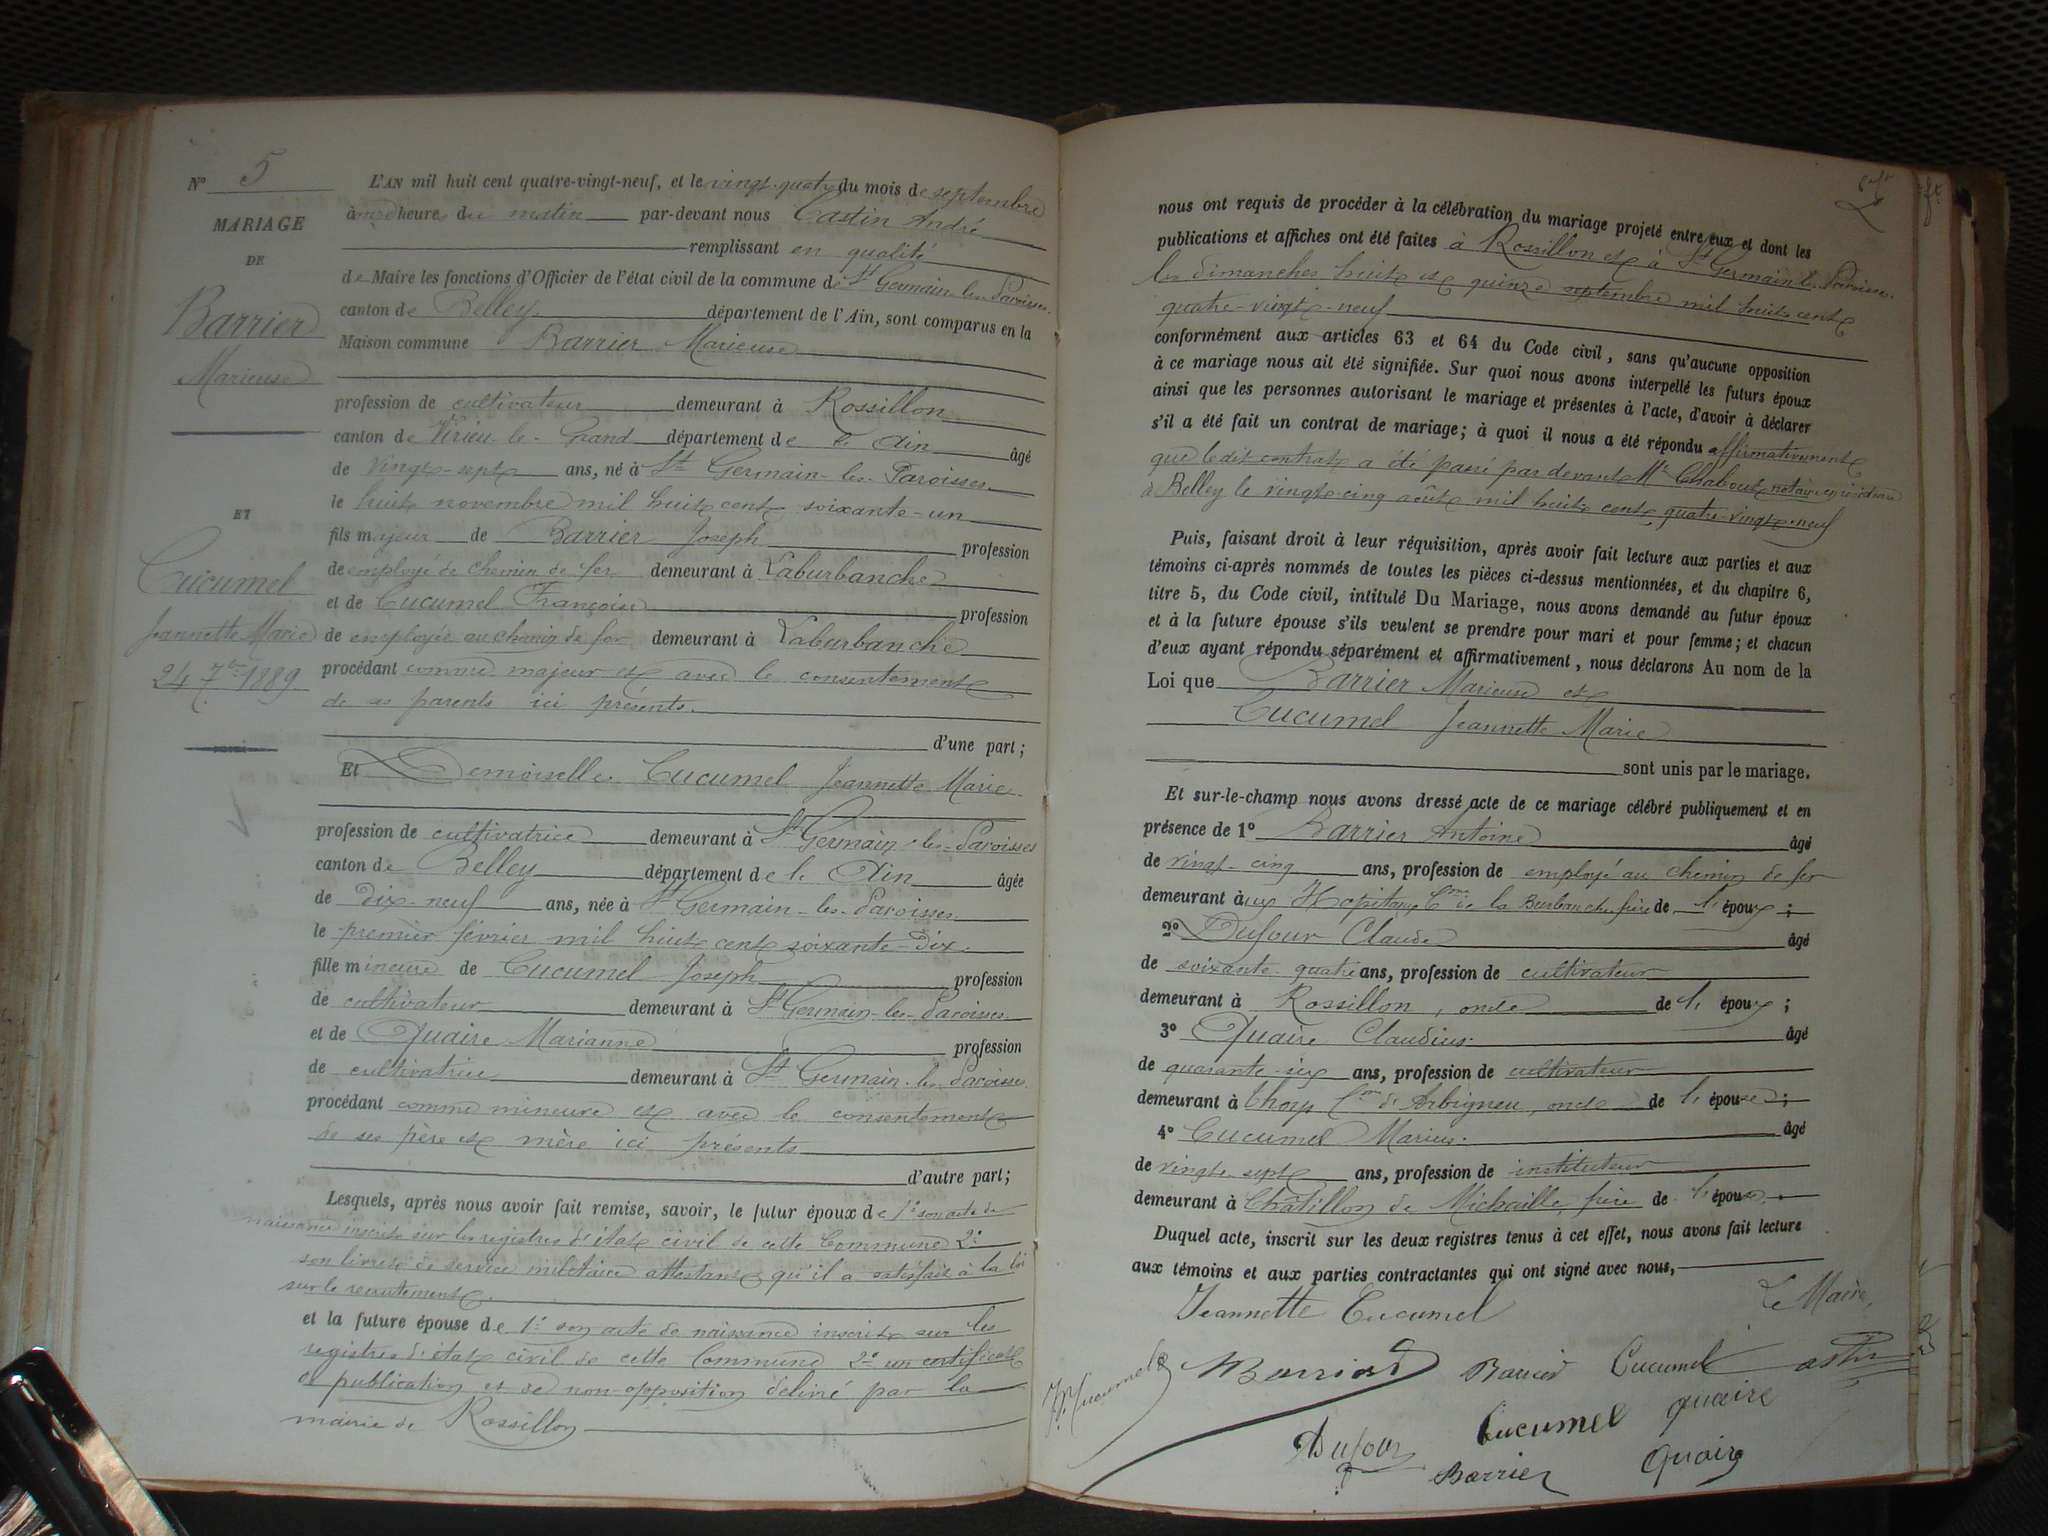 N° 5
MARIAGE
DE
Barrier
Marieuse
ET
Cucumel
Jeannette Marie
24 7bre 1889
L'AN mil huit cent quatre-vingt-neuf, et le vingt-quatre du mois de septembre
à onze heures du matin par-devant nous Castin André
remplissant en qualité
de Maire les fonctions d'Officier de l'état civil de la commune de St Germain-les-Paroisses
canton de Belley département de l'Ain, sont comparus en la
Maison commune Barrier Marieuse
profession de cultivateur demeurant à Rossillon
canton de Virieu-le-Grand département de l'Ain âgé
de vingt-sept ans, né à St Germain-les-Paroisses
le huit novembre mil huit cent soixante-un
fils majeur de Barrier Joseph profession
de employé de chemin de fer demeurant à Laburbanche
et de Cucumel Françoise profession
de employée au chemin de fer demeurant à Laburbanche
procédant comme majeur et avec le consentement
de ses parents ici présents.
d'une part;
Et Demoiselle Cucumel Jeannette Marie
profession de cultivatrice demeurant à St Germain-les-Paroisses
canton de Belley département de l'Ain âgée
de dix-neuf ans, née à St Germain-les-Paroisses
le premier février mil huit cent soixante-dix.
fille mineure de Cucumel Joseph profession
de cultivateur demeurant à St Germain-les-Paroisses
et de Quaire Marianne profession
de cultivatrice demeurant à St Germain-les-Paroisses
procédant comme mineure et avec le consentement
de ses père et mère ici présents
d'autre part;
Lesquels, après nous avoir fait remise, savoir, le futur époux de 1° son acte de
naissance inscrit sur les registres d'état civil de cette Commune 2°
son livret de service militaire attestant qu'il a satisfait à la loi
sur le recrutement.
et la future épouse de 1° son acte de naissance inscrit sur les
registres d'état civil de cette Commune 2° un certificat
de publication et de non-opposition délivré par la
mairie de Rossillon
nous ont requis de procéder à la célébration du mariage projeté entre eux et dont les
publications et affiches ont été faites à Rossillon et à St Germain-les-Paroisses
les dimanches huit et quinze septembre mil huit cent
quatre-vingt-neuf
conformément aux articles 63 et 64 du Code civil, sans qu'aucune opposition
à ce mariage nous ait été signifiée. Sur quoi nous avons interpellé les futurs époux
ainsi que les personnes autorisant le mariage et présentes à l'acte, d'avoir à déclarer
s'il a été fait un contrat de mariage; à quoi il nous a été répondu affirmativement
que ledit contrat a été passé par devant Me Chaboux notaire en résidence
à Belley le vingt-cinq août mil huit cent quatre-vingt-neuf
Puis, faisant droit à leur réquisition, après avoir fait lecture aux parties et aux
témoins ci-après nommés de toutes les pièces ci-dessus mentionnées, et du chapitre 6,
titre 5, du Code civil, intitulé Du Mariage, nous avons demandé au futur époux
et à la future épouse s'ils veulent se prendre pour mari et pour femme; et chacun
d'eux ayant répondu séparément et affirmativement, nous déclarons Au nom de la
Loi que Barrier Marieuse et
Cucumel Jeannette Marie
sont unis par le mariage.
Et sur-le-champ nous avons dressé acte de ce mariage célébré publiquement et en
présence de 1° Barrier Antoine âgé
de vingt-cinq ans, profession de employé au chemin de fer
demeurant aux Hopitaux Cne de la Burbanche frère de l'époux;
2° Dufour Claude âgé
de soixante-quatre ans, profession de cultivateur
demeurant à Rossillon, oncle de l'époux;
3° Quaire Claudius âgé
de quarante-six ans, profession de cultivateur
demeurant à Thoys Cne d'Arbignieu, oncle de l'épouse;
4° Cucumel Marius âgé
de vingt-sept ans, profession de instituteur
demeurant à Châtillon de Michaille, frère de l'épouse.
Duquel acte, inscrit sur les deux registres tenus à cet effet, nous avons fait lecture
aux témoins et aux parties contractantes qui ont signé avec nous,
Jeannette Cucumel Le Maire,
Cucumel Barrier Barrier Cucumel
Cucumel quaire
Dufour Barrier Quaire